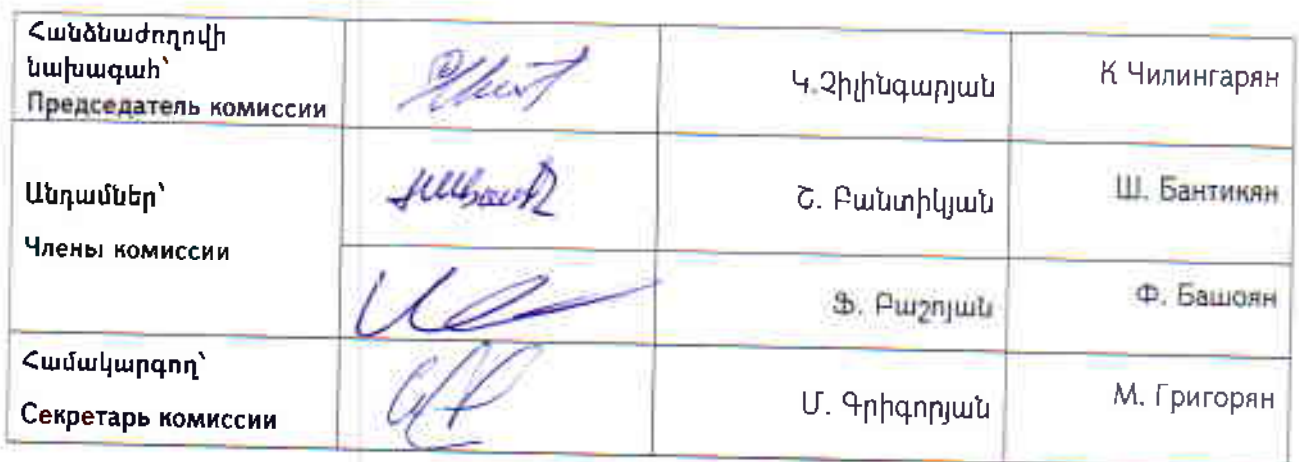 Հանձնաժողովի
նախագահ՝
Председатель комиссии
Կ.Չիլինգարյան
К Чилингарян
Անդամներ՝
Члены комиссии
Շ. Բանտիկյան
Ш. Бантикян
Ֆ. Բաշոյան
Ф. Башоян
Համակարգող՝
Секретарь комиссии
Մ. Գրիգորյան
М. Григорян